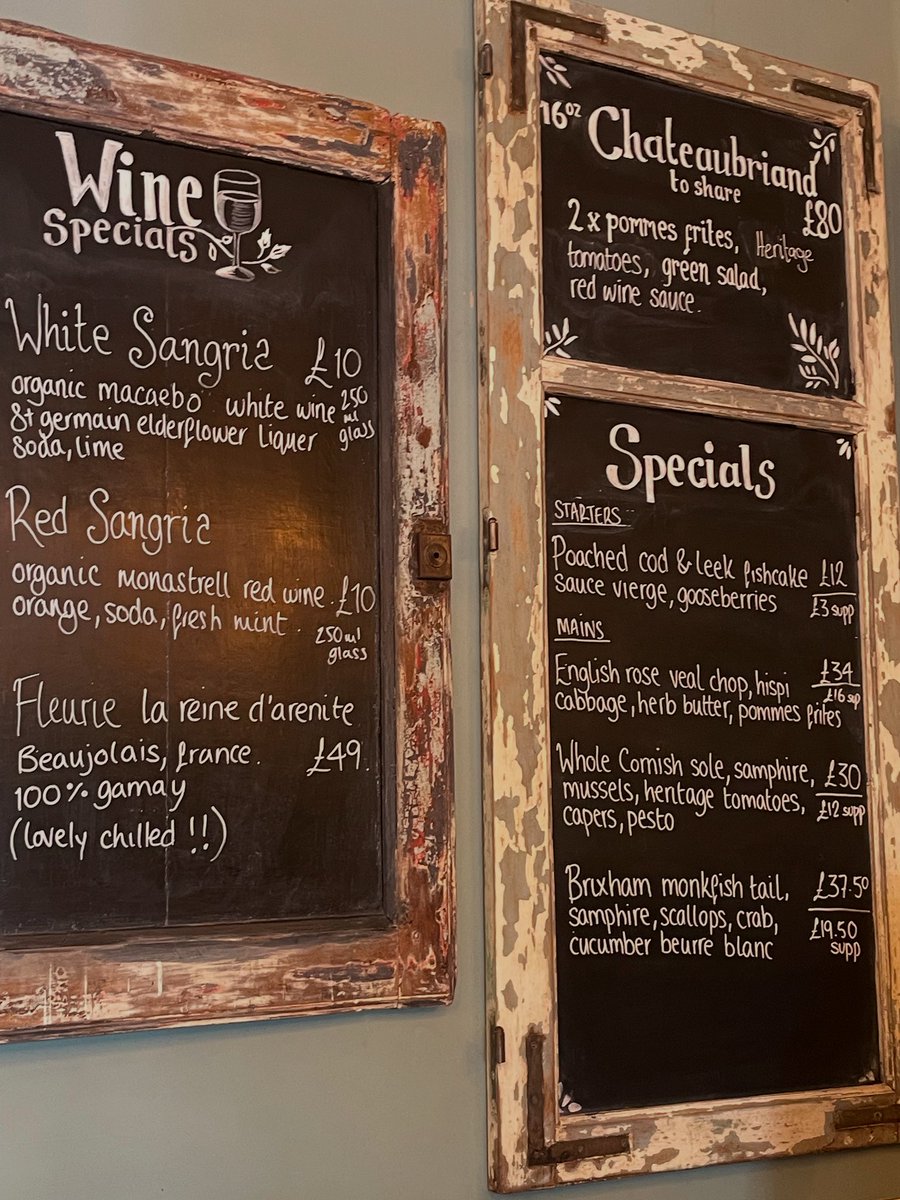 Wine
Specials
White Sangria £10
organic macaebo white wine 250
ml
St germain elderflower liquer glass
Soda, lime
Red Sangria
organic monastrell red wine. £10
orange, soda, fresh mint.
250ml
glass
Fleurie la reine d'arenite
Beaujolais, france. £49.
100% gamay
(lovely chilled !!)
16oz Chateaubriand
to share
£80
2 x pommes frites, Heritage
tomatoes, green salad,
red wine sauce.
Specials
STARTERS
Poached cod & leek fishcake £12
sauce vierge, gooseberries £3 supp
MAINS
English rose veal chop, hispi £34
£16 sup
cabbage, herb butter, pommes frites
Whole Cornish sole, samphire, £30
mussels, heritage tomatoes, £12 supp
capers, pesto
Brixham monkfish tail, £37.50
samphire, scallops, crab, £19.50
cucumber beurre blanc supp